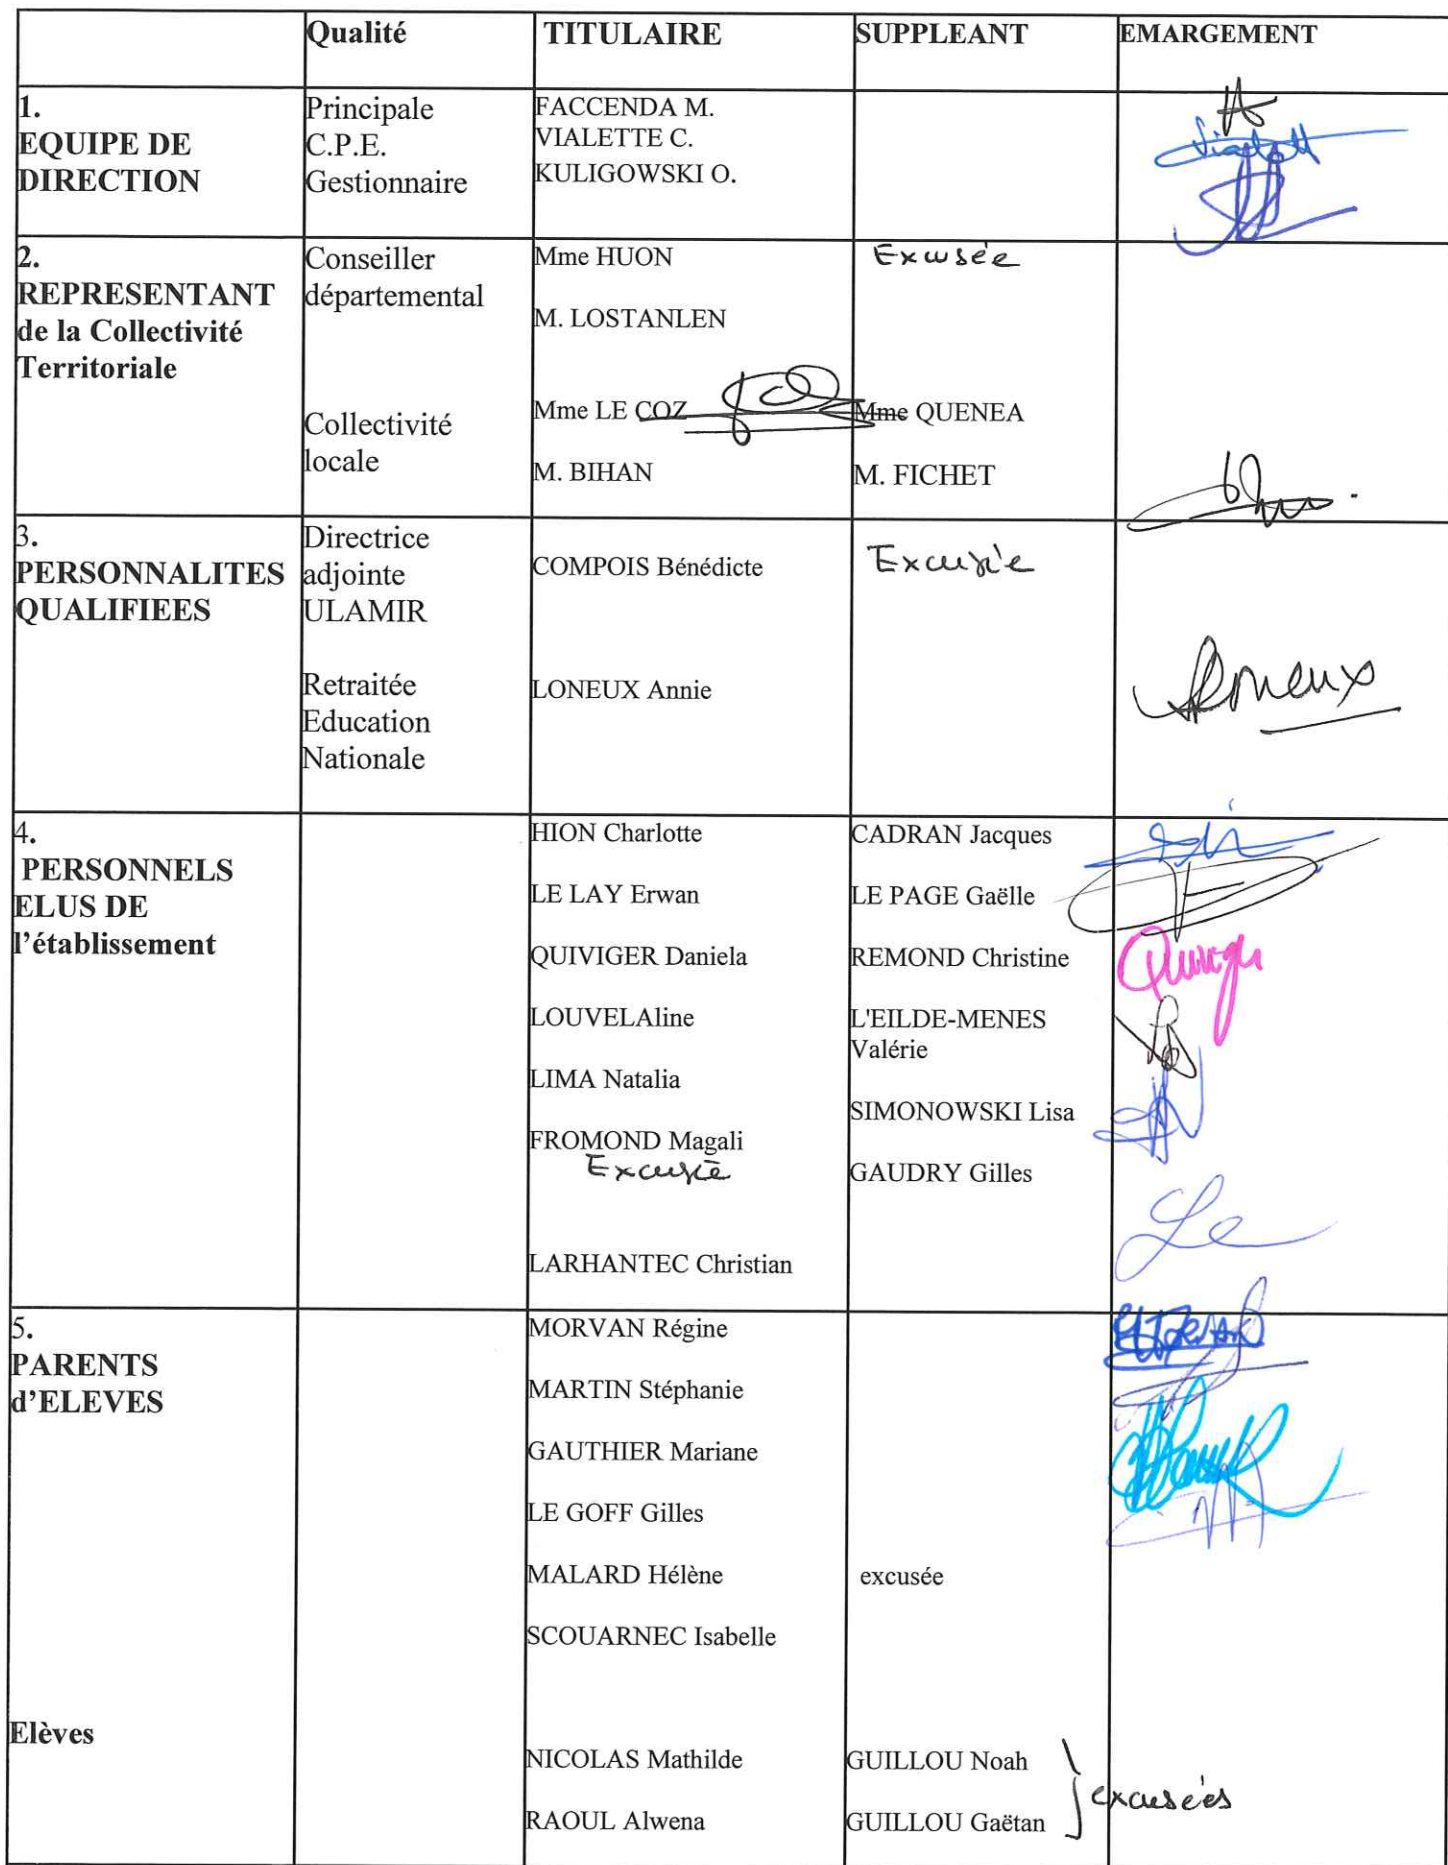 Qualité TITULAIRE SUPPLEANT EMARGEMENT
1.
EQUIPE DE
DIRECTION
Principale
C.P.E.
Gestionnaire
FACCENDA M.
VIALETTE C.
KULIGOWSKI O.
2.
REPRESENTANT
de la Collectivité
Territoriale
Conseiller
départemental
Collectivité
locale
Mme HUON
M. LOSTANLEN
Mme LE COZ
M. BIHAN
Excusée
Mme QUENEA
M. FICHET
3.
PERSONNALITES
QUALIFIEES
Directrice
adjointe
ULAMIR
Retraitée
Education
Nationale
COMPOIS Bénédicte
LONEUX Annie
Excusée
Loneux
4.
PERSONNELS
ELUS DE
l'établissement
HION Charlotte
LE LAY Erwan
QUIVIGER Daniela
LOUVELAline
LIMA Natalia
FROMOND Magali
Excusée
LARHANTEC Christian
CADRAN Jacques
LE PAGE Gaëlle
REMOND Christine
L'EILDE-MENES
Valérie
SIMONOWSKI Lisa
GAUDRY Gilles
5.
PARENTS
d'ELEVES
MORVAN Régine
MARTIN Stéphanie
GAUTHIER Mariane
LE GOFF Gilles
MALARD Hélène
SCOUARNEC Isabelle
excusée
Elèves
NICOLAS Mathilde
RAOUL Alwena
GUILLOU Noah
GUILLOU Gaëtan
excusées